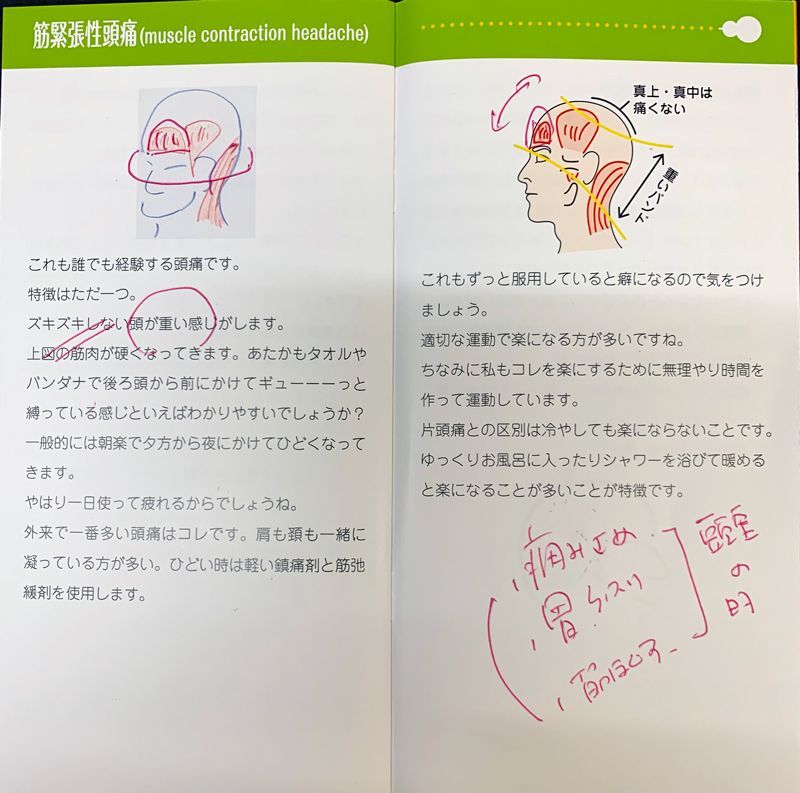 筋緊張性頭痛(muscle contraction headache)
これも誰でも経験する頭痛です。
特徴はただ一つ。
ズキズキしない頭が重い感じがします。
上図の筋肉が硬くなってきます。あたかもタオルや
バンダナで後ろ頭から前にかけてギューーーっと
縛っている感じといえばわかりやすいでしょうか？
一般的には朝楽で夕方から夜にかけてひどくなって
きます。
やはり一日使って疲れるからでしょうね。
外来で一番多い頭痛はコレです。肩も頚も一緒に
凝っている方が多い。ひどい時は軽い鎮痛剤と筋弛
緩剤を使用します。
真上・真中は
痛くない
重いバンド
これもずっと服用していると癖になるので気をつけ
ましょう。
適切な運動で楽になる方が多いですね。
ちなみに私もコレを楽にするために無理やり時間を
作って運動しています。
片頭痛との区別は冷やしても楽にならないことです。
ゆっくりお風呂に入ったりシャワーを浴びて暖める
と楽になることが多いことが特徴です。
痛み止め
胃
筋ほぐす
頭重
の
時